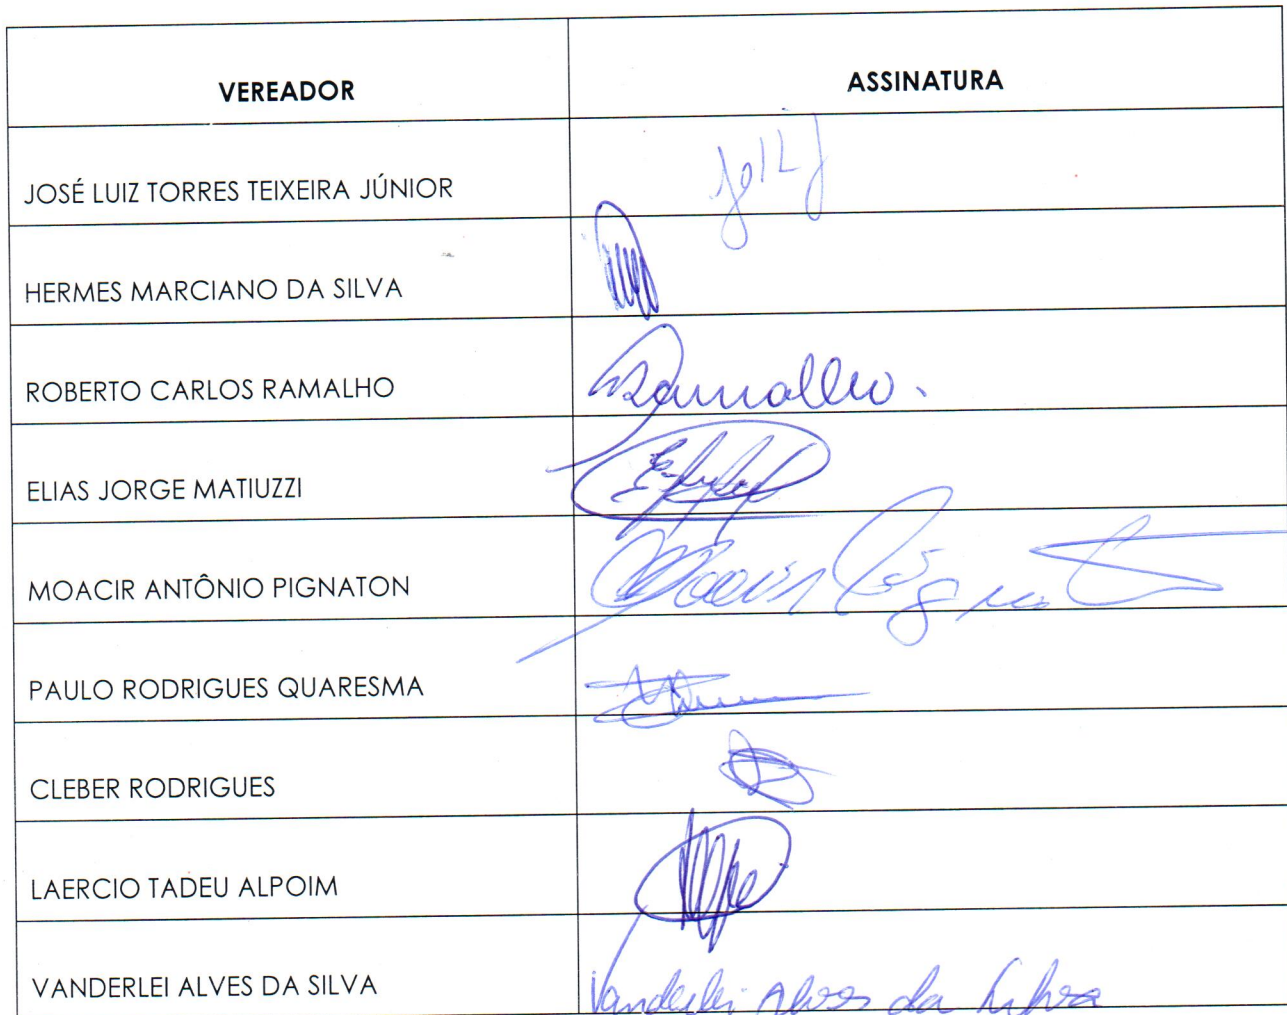 VEREADOR ASSINATURA
JOSÉ LUIZ TORRES TEIXEIRA JÚNIOR
HERMES MARCIANO DA SILVA
ROBERTO CARLOS RAMALHO Ramalho.
ELIAS JORGE MATIUZZI
MOACIR ANTÔNIO PIGNATON Moacir
PAULO RODRIGUES QUARESMA
CLEBER RODRIGUES
LAERCIO TADEU ALPOIM
VANDERLEI ALVES DA SILVA Vanderlei Alves da Silva